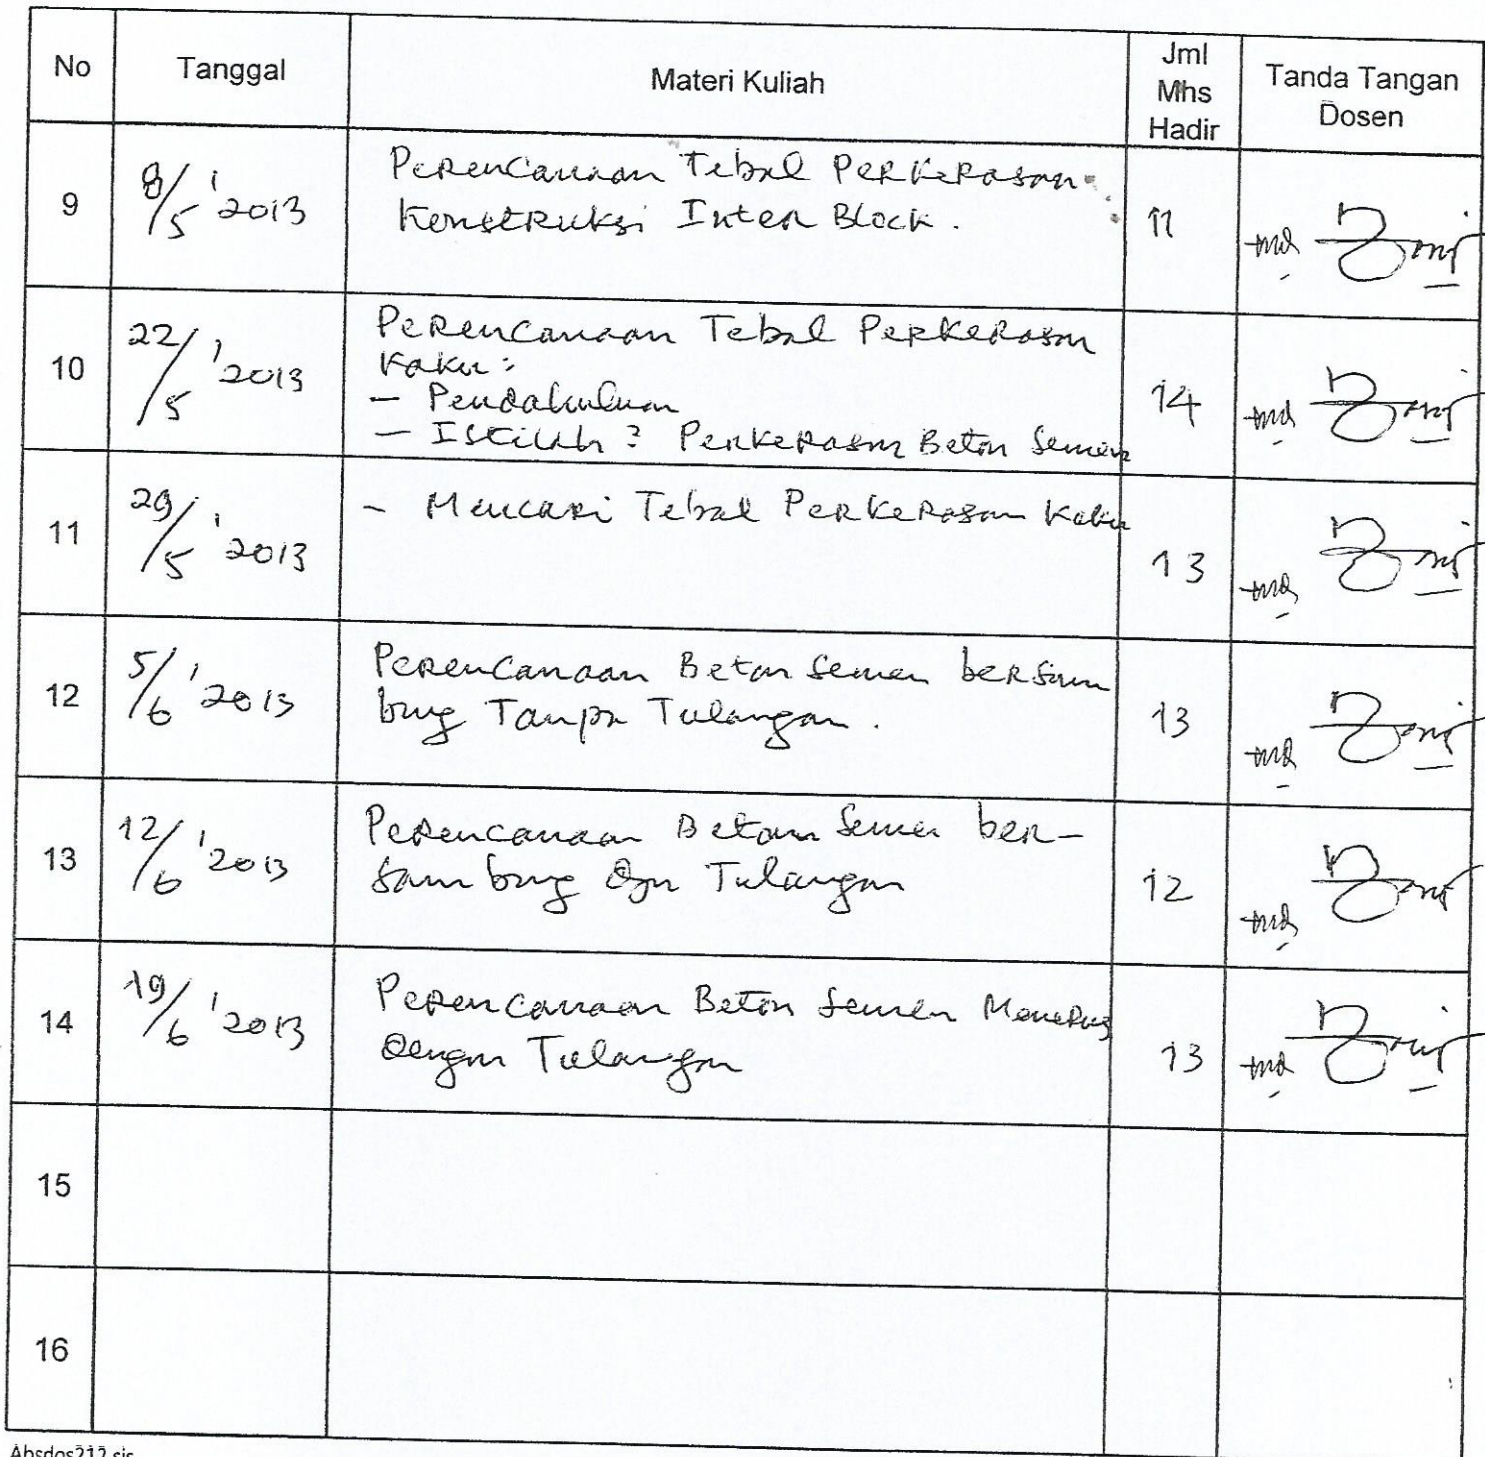 No Tanggal Materi Kuliah Jml Mhs Hadir Tanda Tangan Dosen
9 8/5 '2013 Perencanaan Tebal Perkerasan
Konstruksi Inter Block. 11
10 22/5 '2013 Perencanaan Tebal Perkerasan
Kaku:
- Pendahuluan
- Istilah² Perkerasan Beton Semen 14
11 29/5 '2013 - Mencari Tebal Perkerasan Kaku 13
12 5/6 '2013 Perencanaan Beton Semen bersam
bung Tanpa Tulangan. 13
13 12/6 '2013 Perencanaan Beton Semen ber-
sambung dgn Tulangan 12
14 19/6 '2013 Perencanaan Beton Semen Menerus
dengan Tulangan 13
15
16
Absdos212.sis